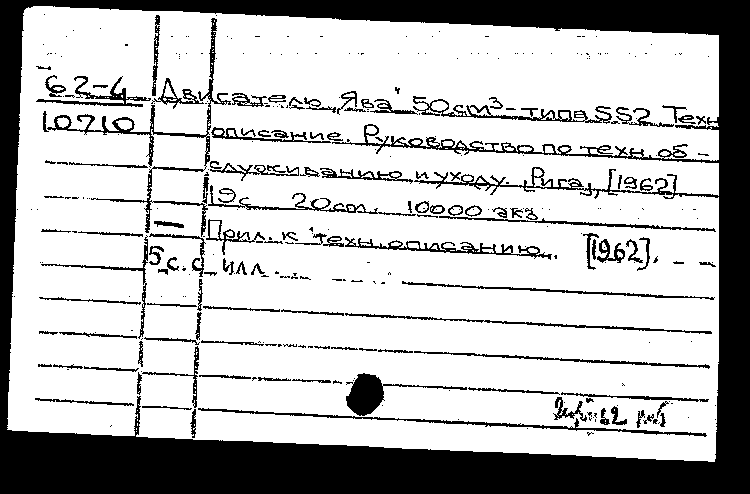 62-4 Двигателю „Ява" 50 cm³ - типа SS2 Техн
10710 описание. Руководство по техн. об -
служиванию и уходу. „Рига„, [1962].
19с 20 cm. 10000 экз.
— Прил. к "техн. описанию„. [1962]. - -
5 с. с илл.